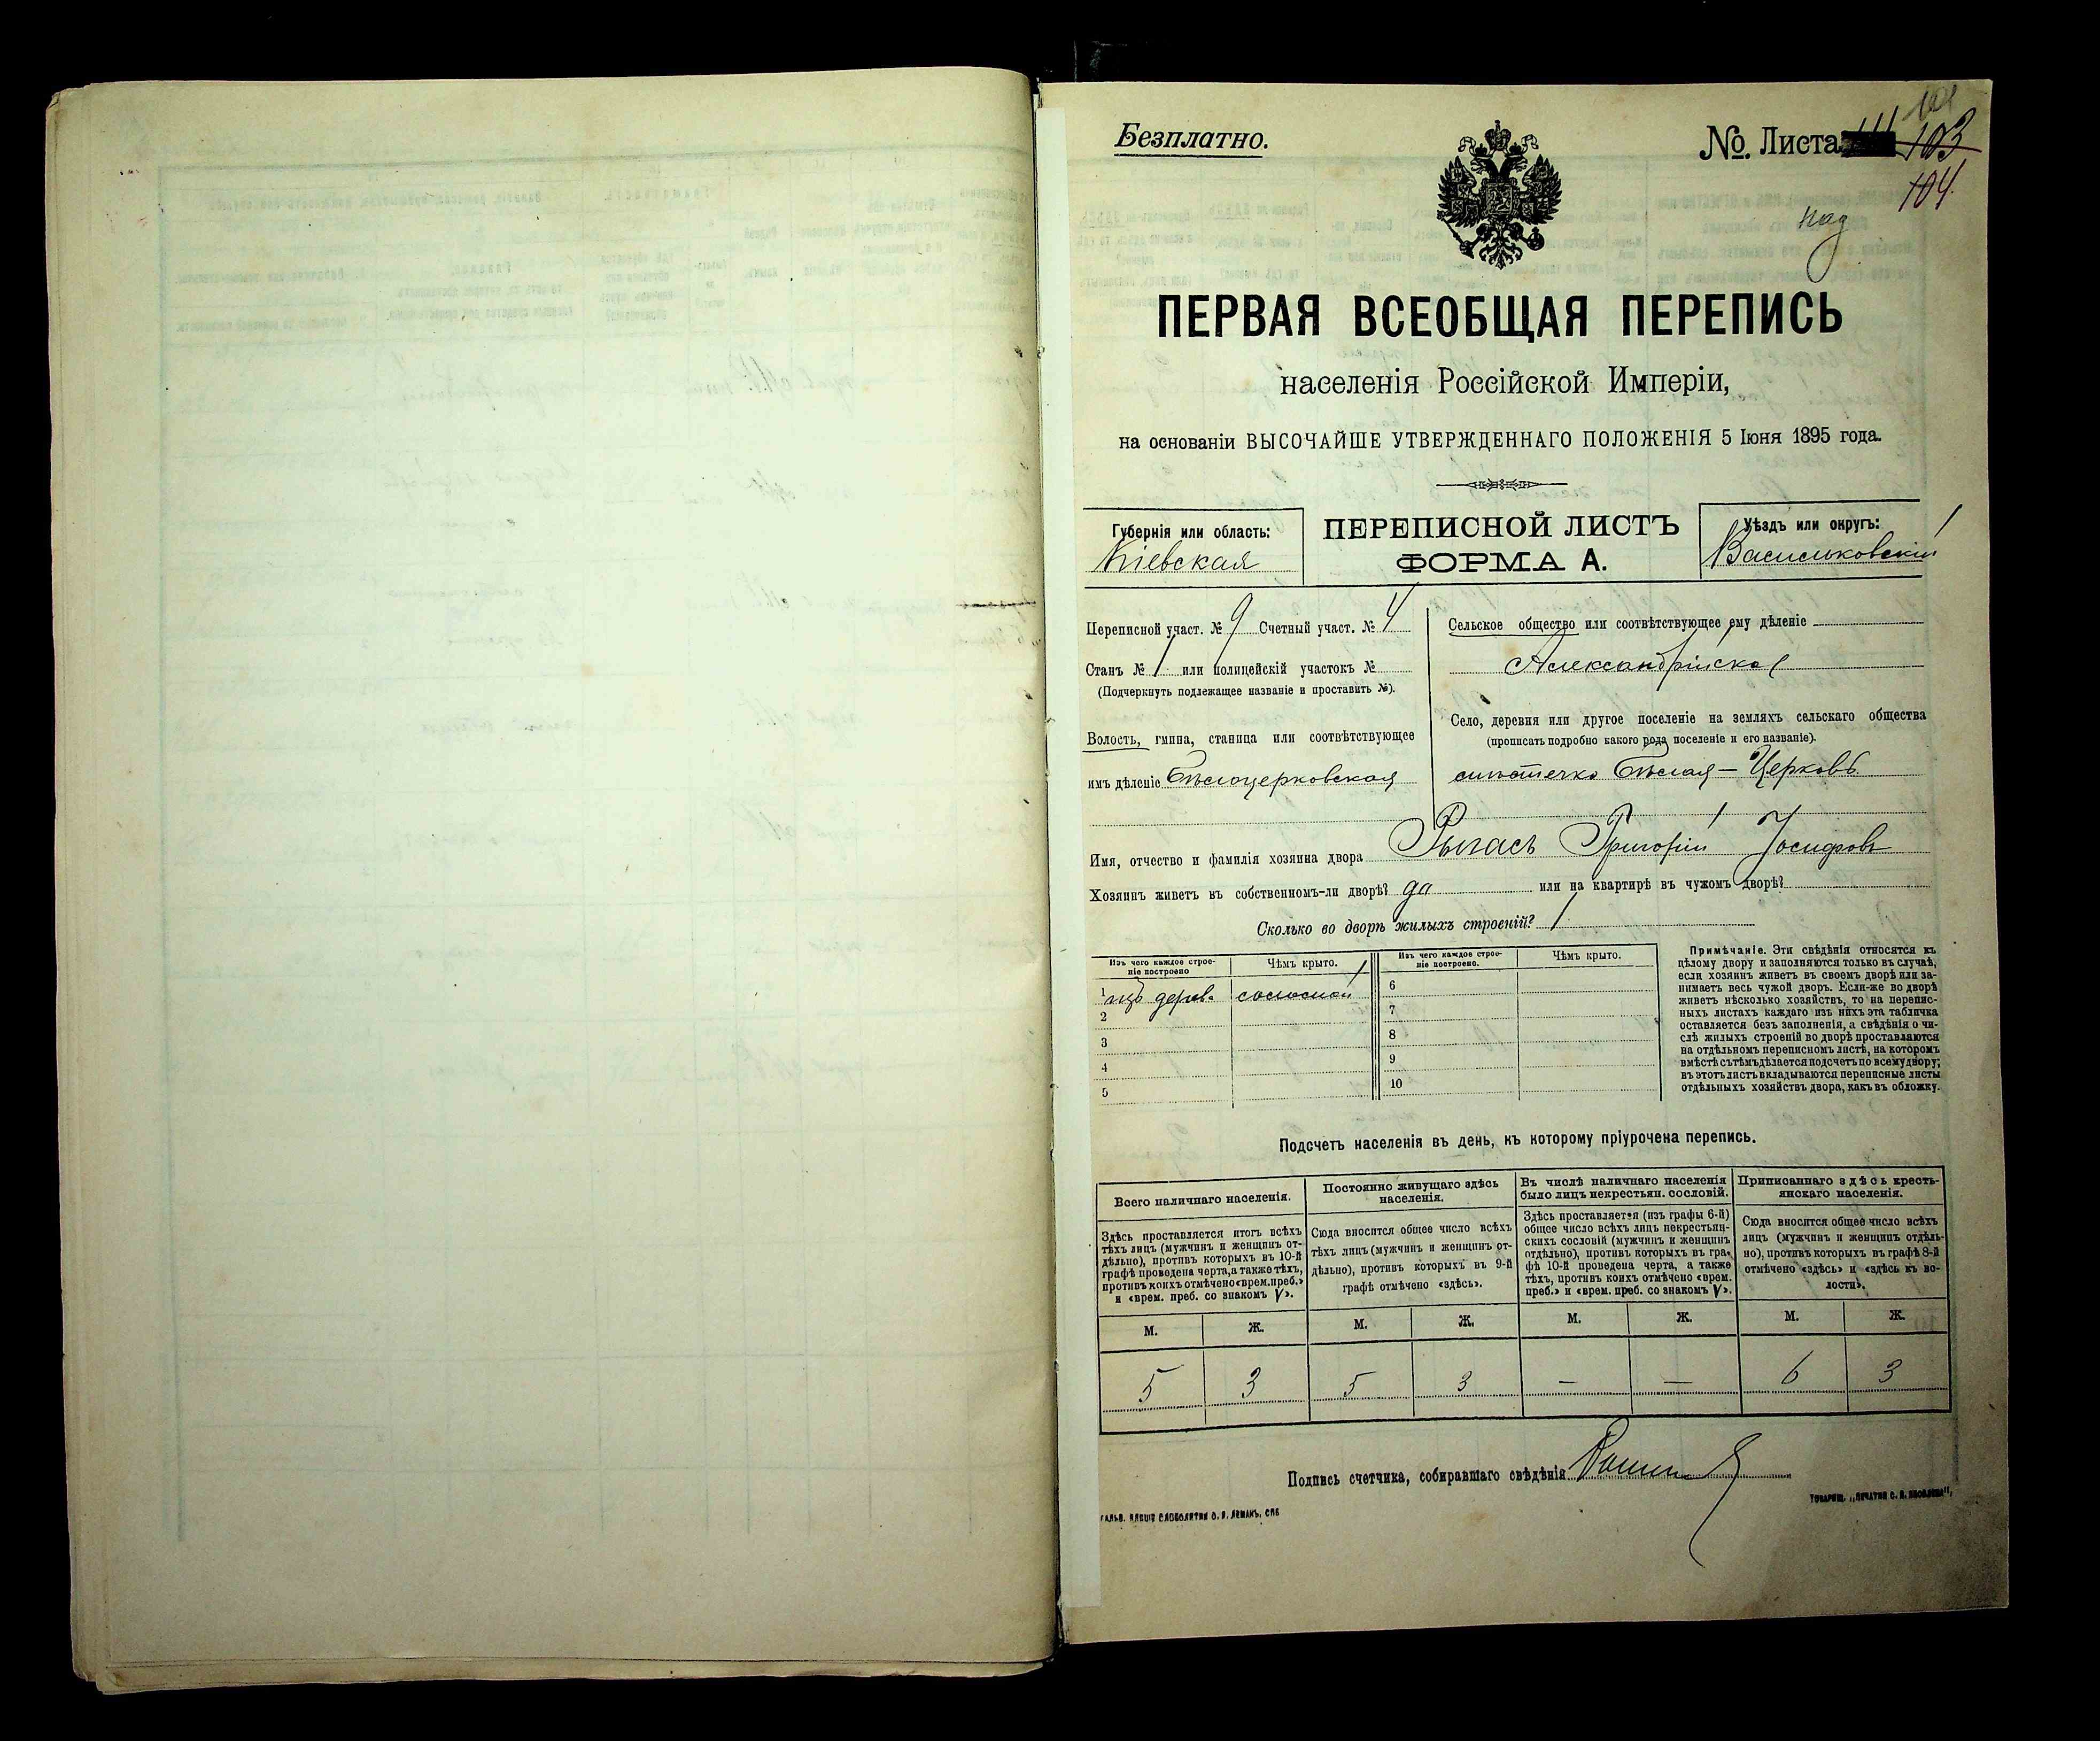 Безплатно.
№. Листа 103
104
над
ПЕРВАЯ ВСЕОБЩАЯ ПЕРЕПИСЬ
населенія Россійской Имперіи,
на основаніи ВЫСОЧАЙШЕ УТВЕРЖДЕННАГО ПОЛОЖЕНІЯ 5 Іюня 1895 года.
Губернія или область:
Кіевская
ПЕРЕПИСНОЙ ЛИСТЪ
ФОРМА А.
Уѣздъ или округъ:
Васильковскій
Переписной участ. № 9 Счетный участ. № 4
Станъ № 1 или полицейскій участокъ №
(Подчеркнуть подлежащее названіе и проставить №).
Волость, гмина, станица или соотвѣтствующее
имъ дѣленіе Бѣлоцерковская
Сельское общество или соотвѣтствующее ему дѣленіе
Александрійское
Село, деревня или другое поселеніе на земляхъ сельскаго общества
(прописать подробно какого рода поселеніе и его названіе).
мѣстечко Бѣлая-Церковь
Имя, отчество и фамилія хозяина двора Григорій Іосифовъ
Хозяинъ живетъ въ собственномъ-ли дворѣ? да или на квартирѣ въ чужомъ дворѣ?
Сколько во дворѣ жилыхъ строеній? 1
Изъ чего каждое строе-
ніе построено
Чѣмъ крыто.
Изъ чего каждое строе-
ніе построено.
Чѣмъ крыто.
1 изъ дерев. соломой
2
3
4
5
6
7
8
9
10
Примѣчаніе. Эти свѣдѣнія относятся къ
цѣлому двору и заполняются только въ случаѣ,
если хозяинъ живетъ въ своемъ дворѣ или за-
нимаетъ весь чужой дворъ. Если-же во дворѣ
живетъ нѣсколько хозяйствъ, то на перепис-
ныхъ листахъ каждаго изъ нихъ эта табличка
оставляется безъ заполненія, а свѣдѣнія о чи-
слѣ жилыхъ строеній во дворѣ проставляются
на отдѣльномъ переписномъ листѣ, на которомъ
вмѣстѣ съ тѣмъ дѣлается подсчетъ по всему двору;
въ этотъ листъ вкладываются переписные листы
отдѣльныхъ хозяйствъ двора, какъ въ обложку.
Подсчетъ населенія въ день, къ которому пріурочена перепись.
Всего наличнаго населенія.
Здѣсь проставляется итогъ всѣхъ
тѣхъ лицъ (мужчинъ и женщинъ от-
дѣльно), противъ которыхъ въ 10-й
графѣ проведена черта, а также тѣхъ,
противъ коихъ отмѣчено «врем. преб.»
и «врем. преб. со знакомъ V».
Постоянно живущаго здѣсь
населенія.
Сюда вносится общее число всѣхъ
тѣхъ лицъ (мужчинъ и женщинъ от-
дѣльно), противъ которыхъ въ 9-й
графѣ отмѣчено «здѣсь».
Въ числѣ наличнаго населенія
было лицъ некрестьян. сословій.
Здѣсь проставляется (изъ графы 6-й)
общее число всѣхъ лицъ некрестьян-
скихъ сословій (мужчинъ и женщинъ
отдѣльно), противъ которыхъ въ гра-
фѣ 10-й проведена черта, а также
тѣхъ, противъ коихъ отмѣчено «врем.
преб.» и «врем. преб. со знакомъ V».
Приписаннаго здѣсь кресть-
янскаго населенія.
Сюда вносится общее число всѣхъ
лицъ (мужчинъ и женщинъ отдѣль-
но), противъ которыхъ въ графѣ 8-й
отмѣчено «здѣсь» и «здѣсь въ во-
лости».
М. Ж. М. Ж. М. Ж. М. Ж.
5 3 5 3 — — 6 3
Подпись счетчика, собиравшаго свѣдѣнія